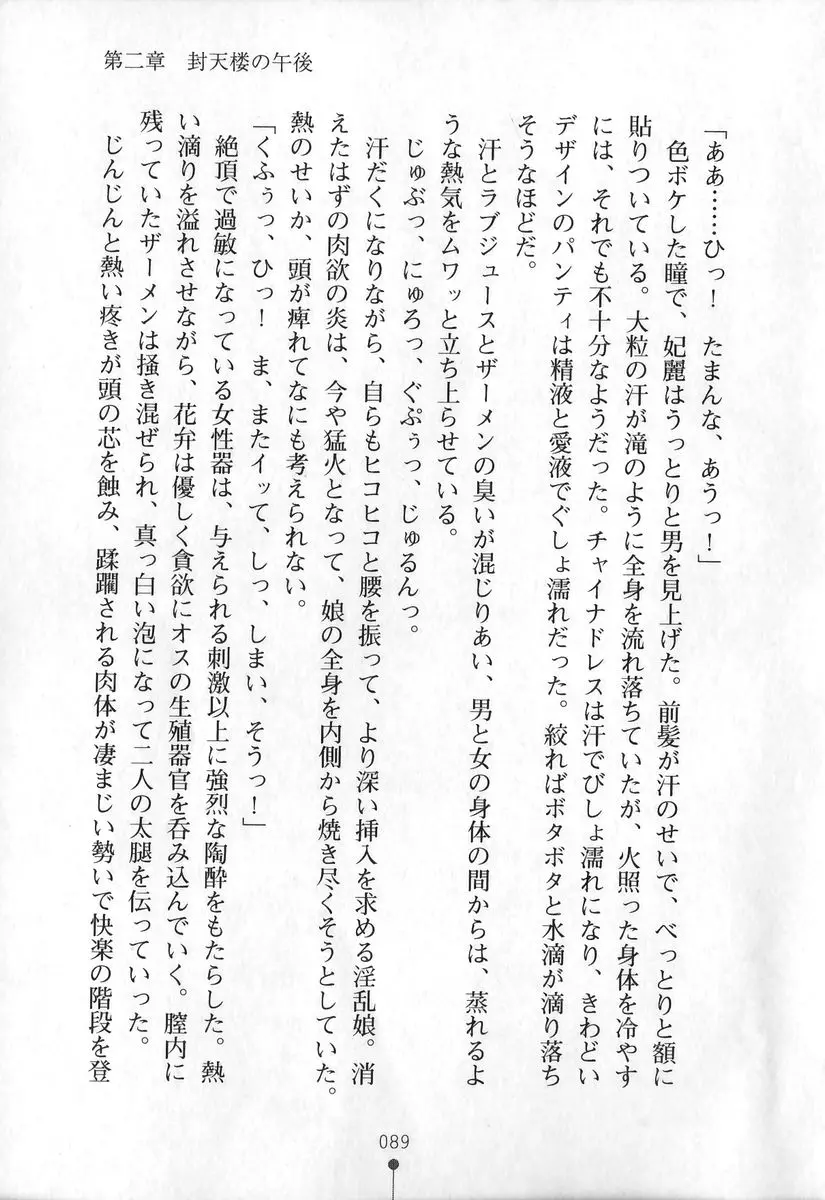 第二章　封天楼の午後
「ああ……ひっ！　たまんな、あうっ！」
　色ボケした瞳で、妃麗はうっとりと男を見上げた。前髪が汗のせいで、べっとりと額に
貼りついている。大粒の汗が滝のように全身を流れ落ちていたが、火照った身体を冷やす
には、それでも不十分なようだった。チャイナドレスは汗でびしょ濡れになり、きわどい
デザインのパンティは精液と愛液でぐしょ濡れだった。絞ればボタボタと水滴が滴り落ち
そうなほどだ。
　汗とラブジュースとザーメンの臭いが混じりあい、男と女の身体の間からは、蒸れるよ
うな熱気をムワッと立ち上らせている。
　じゅぶっ、にゅろっ、ぐぷぅっ、じゅるんっ。
　汗だくになりながら、自らもヒコヒコと腰を振って、より深い挿入を求める淫乱娘。消
えたはずの肉欲の炎は、今や猛火となって、娘の全身を内側から焼き尽くそうとしていた。
熱のせいか、頭が痺れてなにも考えられない。
「くふぅっ、ひっ！　ま、またイッて、しっ、しまい、そうっ！」
　絶頂で過敏になっている女性器は、与えられる刺激以上に強烈な陶酔をもたらした。熱
い滴りを溢れさせながら、花弁は優しく貪欲にオスの生殖器官を呑み込んでいく。膣内に
残っていたザーメンは掻き混ぜられ、真っ白い泡になって二人の太腿を伝っていった。
　じんじんと熱い疼きが頭の芯を蝕み、蹂躙される肉体が凄まじい勢いで快楽の階段を登
089